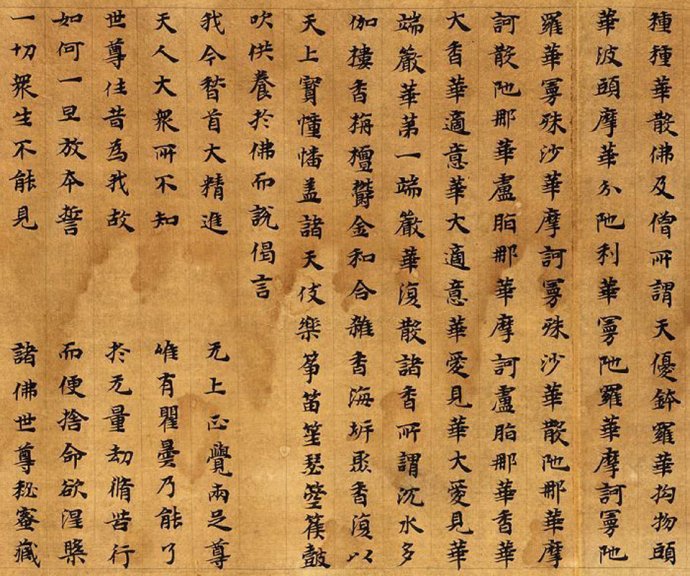 種種華散佛及僧所謂天優鉢羅華拘物頭
華波頭摩華分陁利華曼陁羅華摩訶曼陁
羅華曼殊沙華摩訶曼殊沙華散陁那華摩
訶散陁那華盧脂那華摩訶盧脂那華香華
大香華適意華大適意華愛見華大愛見華
端嚴華第一端嚴華復散諸香所謂沉水多
伽摟香栴檀欝金和合雜香海岸聚香復以
天上寳幢幡盖諸天伎樂筝笛笙瑟箜篌皷
吹供養於佛而說偈言
我今稽首大精進 无上正覺兩足尊
天人大衆所不知 唯有瞿曇乃能了
世尊住昔為我故 於无量劫脩苦行
如何一旦放本誓 而便捨命欲涅槃
一切衆生不能見 諸佛世尊秘蜜藏